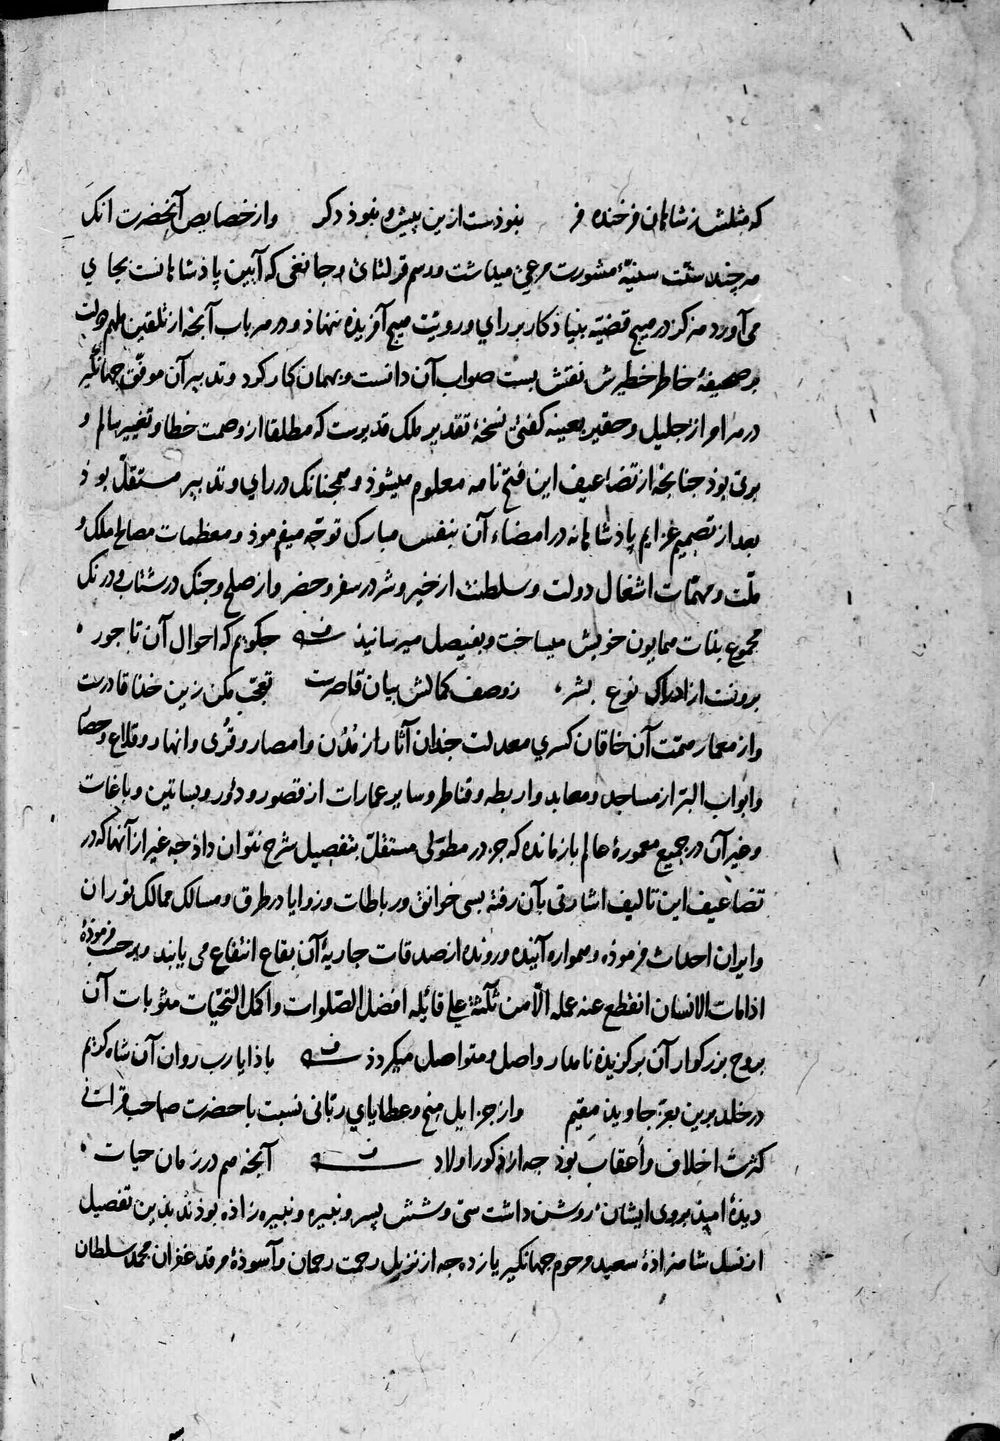 که مثلش ز شاهان فرخنده فر نبوذست ازین پیش و نبوذ دکر واز خصایص آنحضرت انک
هرچند سنّت سنیّهٔ مشورت مرعی میداشت ورسم قرلتای وجانقی که آیین پاذشاهانست بجای
می آورد هرکز در هیچ قضیّه بنیاذ کار بر رای ورویّت هیچ آفریذه ننهاذ ودر هر باب آنچه از تلقین ملهم دولت
بر صحیفهٔ خاطر خطیرش نقش بست صواب آن دانست وبهمان کار کرد وتدبیر آن موفّق جهانگیر
در هر امر از جلیل وحقیر بعینه کفتئ نسخهٔ تقدیر ملک قدیرست که مطلقا از وصمت خطا وتغییر سالم و
بری بوذ جنانجه از تضاعیف این فتح نامه معلوم میشوذ وهمجنانک در رای وتدبیر مستقلّ بوذ
بعد از تصمیم عزایم پاذشاهانه در امضاء آن بنفس مبارک توجّه میفرموذ ومعظمات مصالح ملک و
ملّت ومهمّات اشغال دولت وسلطنت از خیر وشر در سفر وحضر واز صلح وجنک در شتاب ودرنک
مجموع بذات همایون خویش میساخت وبفیصل میرسانیذ جکویم که احوال آن تاجور
برونست از ادراک نوع بشر ز وصف کمالش بیان قاصرست تعجّب مکن زین خذا قادرست
واز معمار همّت آن خاقان کسری معدلت جندان آثار از مُدُن وامصار وقُری وانهار وقلاع وحصار
وابواب البرّ از مساجد ومعابد واربطه وقناطر وسایر عمارات از قصور ودور وبساتین وباغات
وغیر آن در جمیع معمورهٔ عالم باز مانده که جز در مطوّلی مستقلّ بتفصیل شرح نتوان داذ جه غیر از آنها که در
تضاعیف این تالیف اشارتی بآن رفته بسی خوانق ورباطات وزوایا در طرق ومسالک ممالک توران
وایران احداث فرموذه وهمواره آینده ورونده از صدقات جاریهٔ آن بقاع انتفاع می یابند وبرحسب فرموذهٔ
اذا مات الانسان انقطع عنه عمله الّا من ثلثة علی قائله افضل الصّلوات واکمل التحیّات مثوبات آن
بروح بزرکوار آن برکزیذه نامدار واصل ومتواصل میکردذ باذا یارب روان آن شاه کریم
در خلد برین بعزّ جاویذ مقیم واز جزایل منح وعطایای ربّانی نسبت با حضرت صاحب قرانی
کثرت اخلاف وأعقاب بوذ جه از ذکور اولاد آنجه هم در زمان حیات
دیذهٔ امیذ بروی ایشان روشن داشت سی وشش پسر ونبیره ونبیره زاذه بوذند بذین تفصیل
از نسل شاهزاذهٔ سعید مرحوم جهانکیر یازده جه از نزیل رحمت رحمان وآسوذهٔ مرقد غفران محمّد سلطان